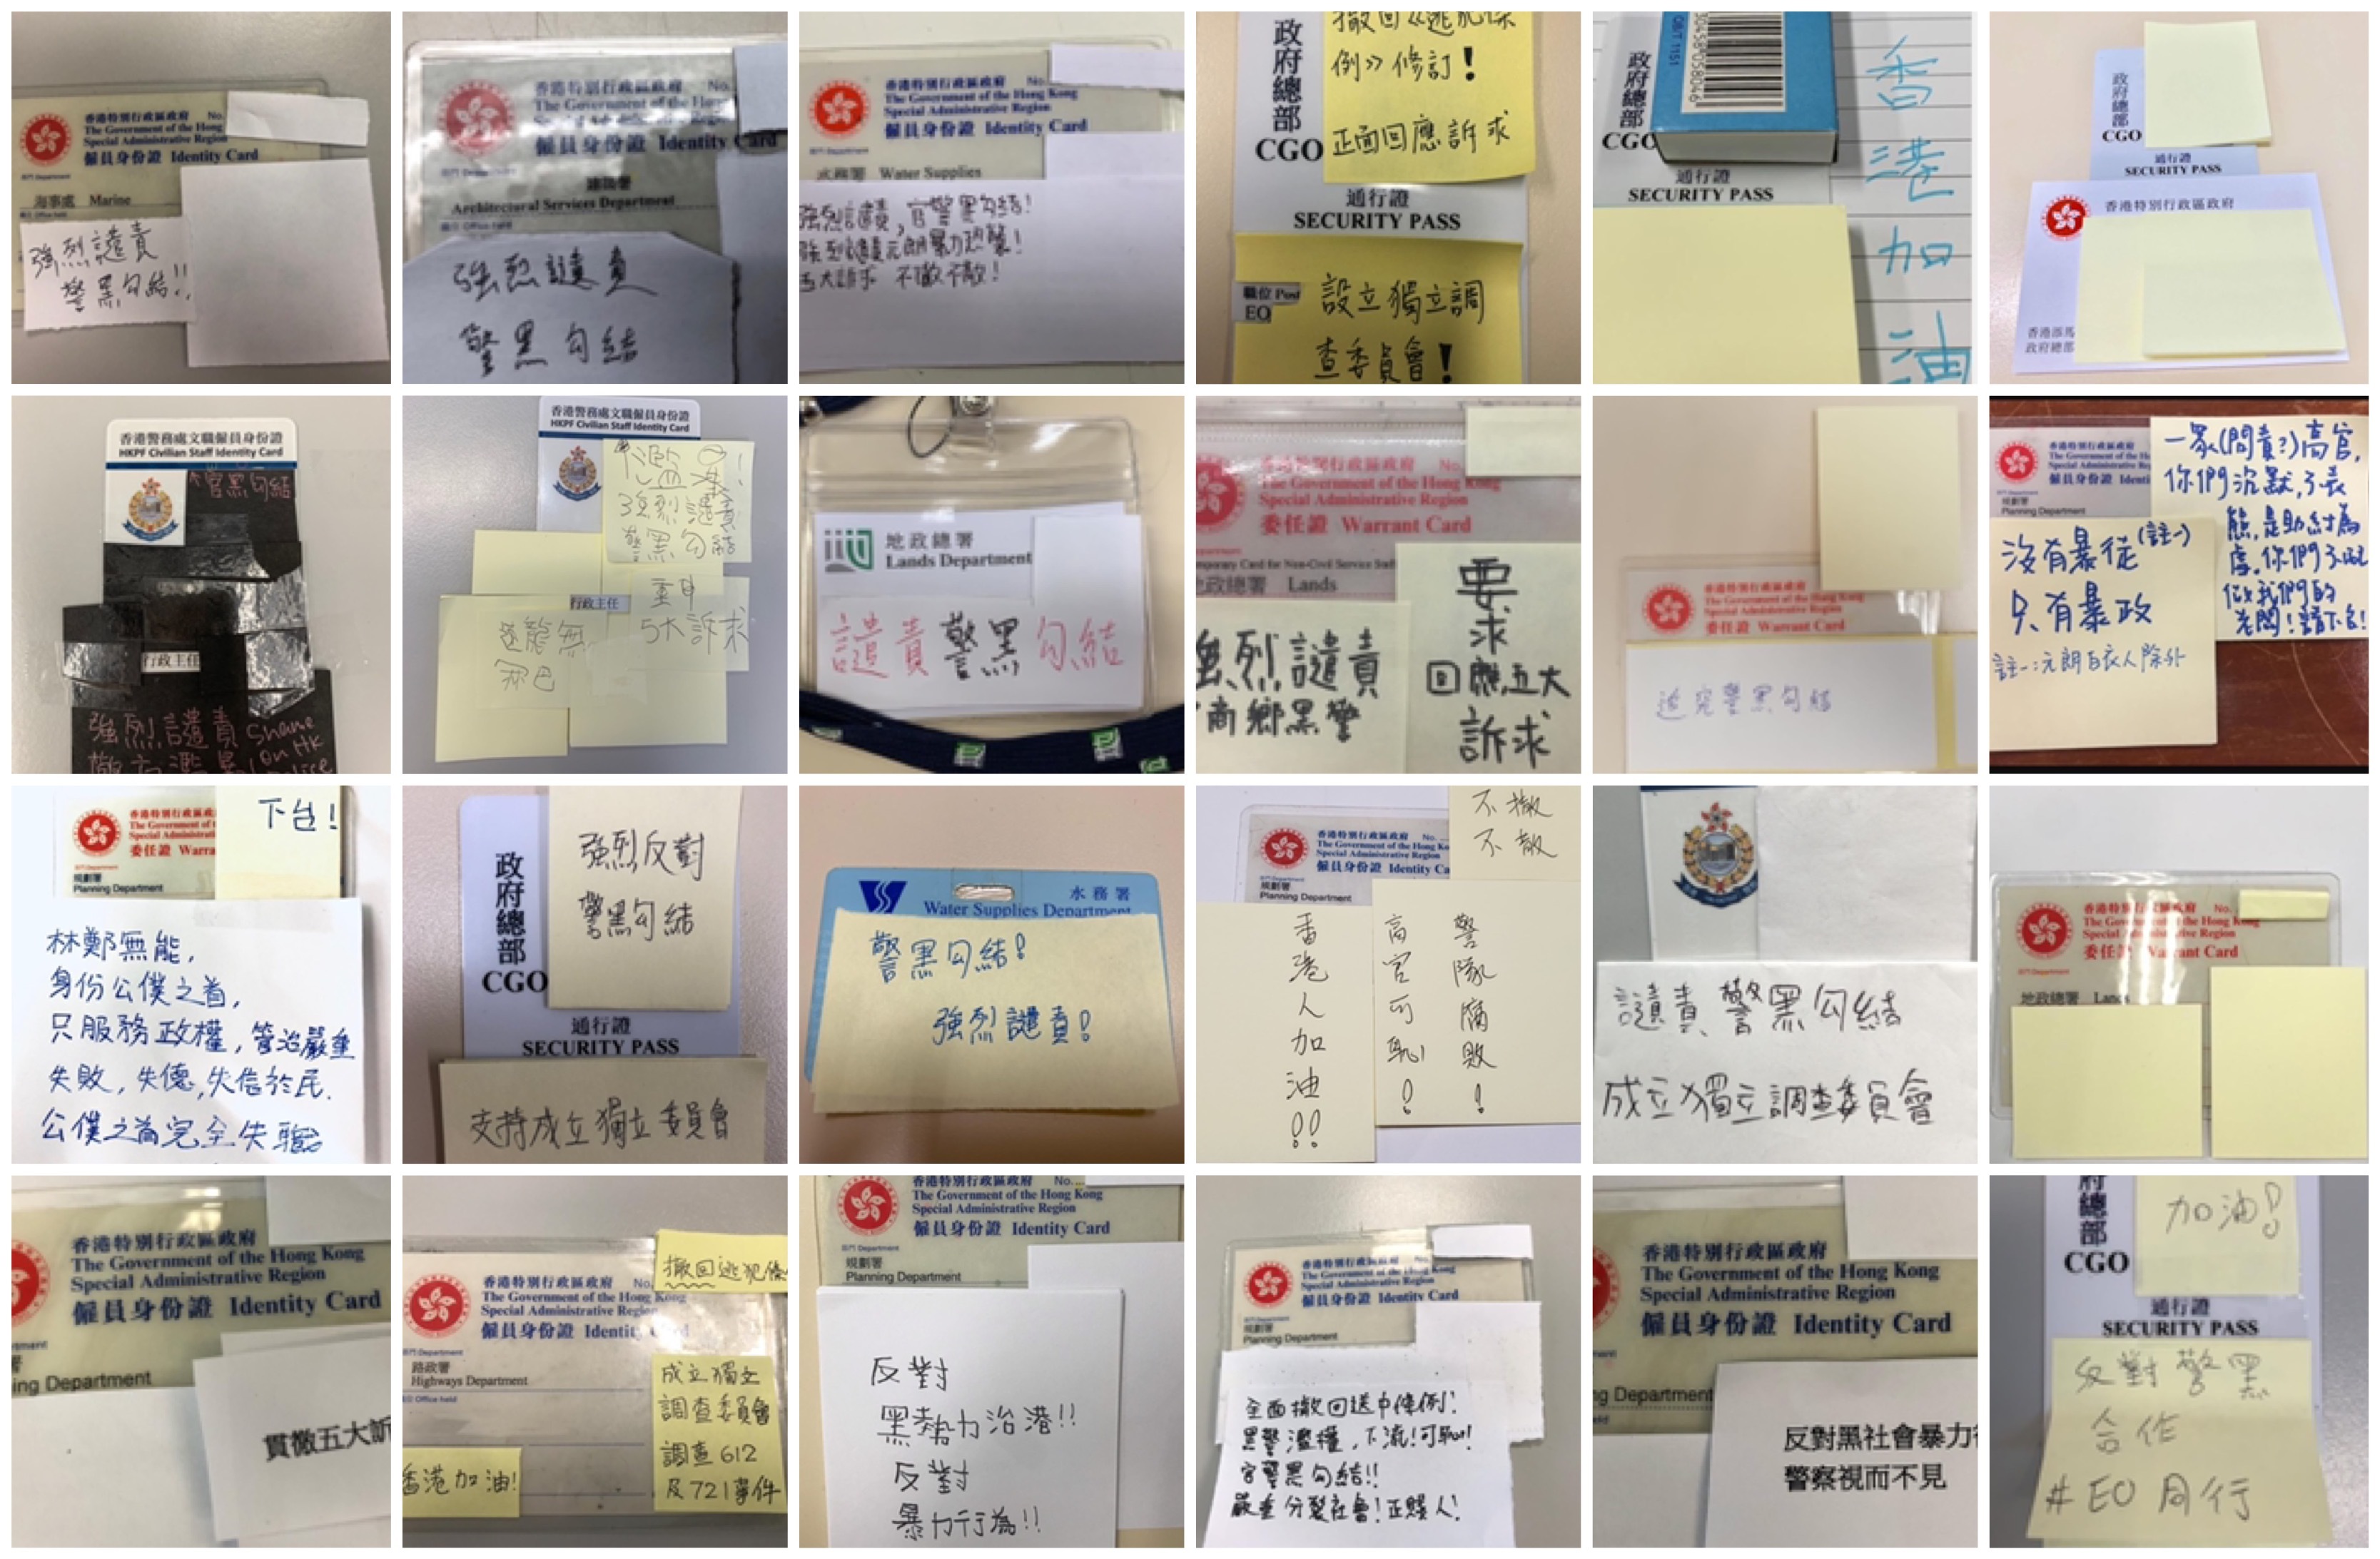 香港特別行政區政府 No.
The Government of the Hong
Special Administrative Region
僱員身份證 Identity Card
部門 Department
海事處 Marine
強烈譴責
警黑勾結!!
香港特別行政區政府 No.
The Government of the Hong
Special Administrative Region
僱員身份證 Identity Card
建築署
Architectural Services Department
強烈譴責
警黑勾結
香港特別行政區政府 No.
The Government of the Hong Kong
Special Administrative Region
僱員身份證 Identity Card
部門 Department
水務署 Water Supplies
強烈譴責,官警黑勾結!
強烈譴責元朗暴力恐襲!
五大訴求 不撤不散!
政府總部
CGO
撤回《逃犯條
例》修訂!
正面回應訴求
通行證
SECURITY PASS
職位 Post
EO
設立獨立調
查委員會!
政府總部
CGO
通行證
SECURITY PASS
香港加油
政府總部
CGO
通行證
SECURITY PASS
香港特別行政區政府
香港添馬
政府總部
香港警務處文職僱員身份證
HKPF Civilian Staff Identity Card
官黑勾結
行政主任
強烈譴責 Shame
on HK
香港警務處文職僱員身份證
HKPF Civilian Staff Identity Card
強烈譴責
警黑勾結
行政主任
重申
5大訴求
地政總署
Lands Department
譴責警黑勾結
香港特別行政區政府 No.
The Government of the Hong Kong
Special Administrative Region
委任證 Warrant Card
地政總署 Lands
強烈譴責
商鄉黑警
要求
回應五大
訴求
委任證 Warrant Card
追究警黑勾結
香港特別行政區政府
The Government of the H
Special Administrative Reg
僱員身份證 Identi
規劃署
Planning Department
一眾(問責?)高官,
你們沉默,不表
態,是助紂為
虐,你們不配
做我們的
老闆!請下台!
沒有暴徒(註一)
只有暴政
註一:元朗白衣人除外
香港特別行政區政
The Government of
Special Administrati
委任證 Warra
規劃署
Planning Department
下台!
林鄭無能,
身份公僕之首,
只服務政權,管治嚴重
失敗,失德,失信於民.
公僕之首完全失職。
政府總部
CGO
強烈反對
警黑勾結
通行證
SECURITY PASS
支持成立獨立委員會
水務署
Water Supplies Department
警黑勾結!
強烈譴責!
香港特別行政區政府 No.
The Government of the Hong Ko
Special Administrative Region
僱員身份證 Identity Ca
規劃署
Planning Department
不撤
不散
警隊腐敗!
高官可恥!
香港人加油!!
譴責警黑勾結
成立獨立調查委員會
香港特別行政區政府 No.
The Government of the Hong Kong
Special Administrative Region
委任證 Warrant Card
地政總署 Lands
香港特別行政區政府
The Government of the Hong Kong
Special Administrative Region
僱員身份證 Identity Card
ing Department
貫徹五大訴
香港特別行政區政府 No.
The Government of the Hong Kong
Special Administrative Region
僱員身份證 Identity Card
部門 Department
路政署
Highways Department
撤回逃犯條
成立獨立
調查委員會
調查612
及721事件
香港加油!
香港特別行政區政府 No.
The Government of the Hong Kong
Special Administrative Region
僱員身份證 Identity Card
部門 Department
規劃署
Planning Department
反對
黑勢力治港!!
反對
暴力行為!!
香港特別行政區政府
The Government of the Hong Kong
Special Administrative Region
僱員身份證 Identity Card
規劃署
Planning Department
全面撤回送中條例!
黑警濫權,下流!可恥!
官警黑勾結!!
嚴重分裂社會!正賤人!
香港特別行政區政府
The Government of the Hong Kong
Special Administrative Region
僱員身份證 Identity Card
ng Department
反對黑社會暴力
警察視而不見
府總部
CGO
加油!
通行證
SECURITY PASS
反對警黑
合作
#EO同行